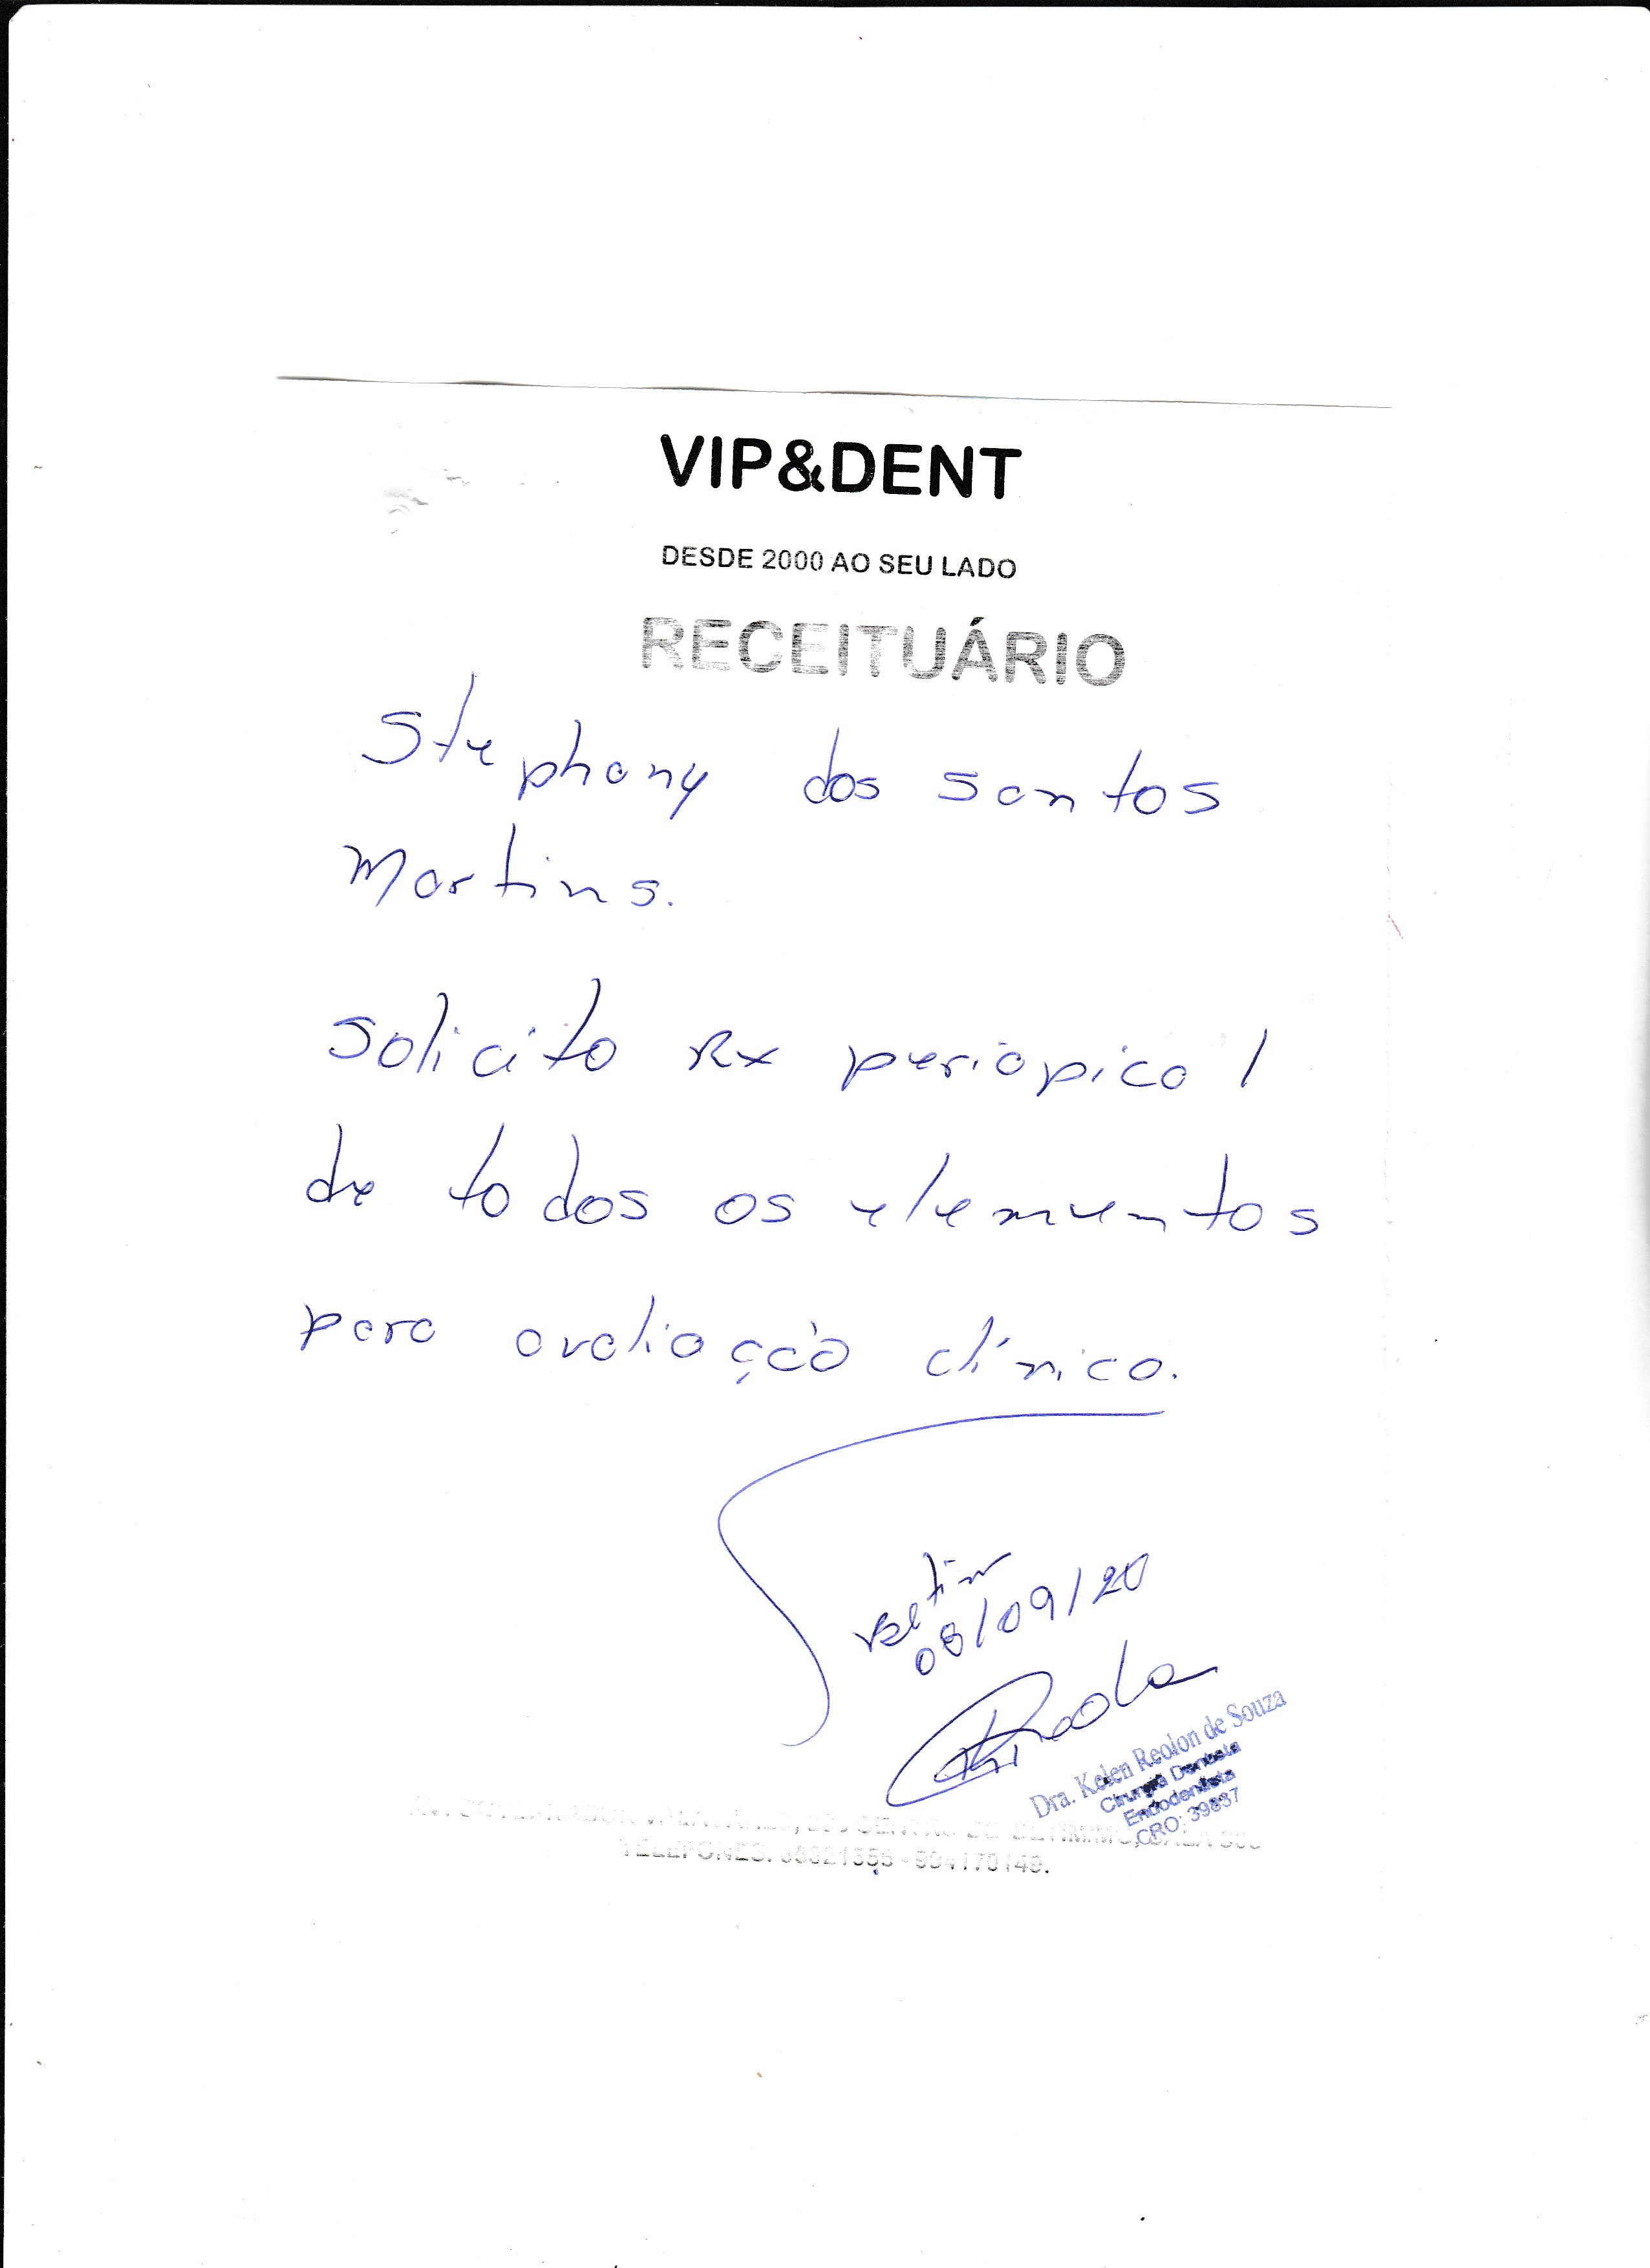 VIP&DENT
DESDE 2000 AO SEU LADO
RECEITUÁRIO
Stephany dos santos
Martins.
Solicito Rx periapical
de todos os elementos
para avaliação clínica.
Betim
08/09/20
Dra. Kelen Reolon de Souza
Cirurgiã Dentista
Endodontista
CRO: 39837
TELEFONES: